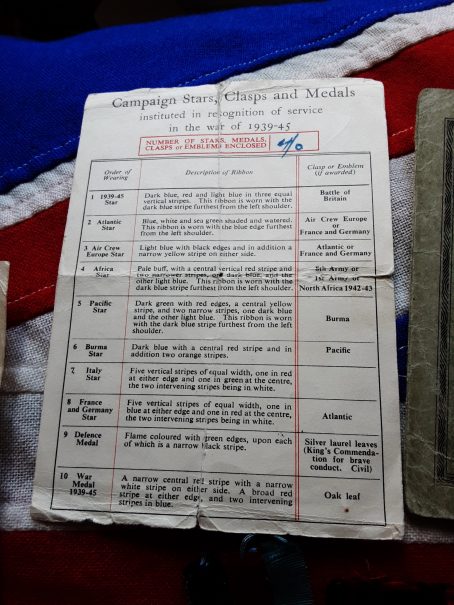 Campaign Stars, Clasps and Medals
instituted in recognition of service
in the war of 1939-45
NUMBER OF STARS, MEDALS,
CLASPS or EMBLEMS ENCLOSED
Order of Wearing
Description of Ribbon
Clasp or Emblem (if awarded)
1 1939-45 Star
Dark blue, red and light blue in three equal
vertical stripes. This ribbon is worn with the
dark blue stripe furthest from the left shoulder.
Battle of Britain
2 Atlantic Star
Blue, white and sea green shaded and watered.
This ribbon is worn with the blue edge furthest
from the left shoulder.
Air Crew Europe
or
France and Germany
3 Air Crew Europe Star
Light blue with black edges and in addition a
narrow yellow stripe on either side.
Atlantic or
France and Germany
4 Africa Star
Pale buff, with a central vertical red stripe and
two narrower stripes, one dark blue, and the
other light blue. This ribbon is worn with the
dark blue stripe furthest from the left shoulder.
8th Army or
1st Army or
North Africa 1942-43
5 Pacific Star
Dark green with red edges, a central yellow
stripe, and two narrow stripes, one dark blue
and the other light blue. This ribbon is worn
with the dark blue stripe furthest from the left
shoulder.
Burma
6 Burma Star
Dark blue with a central red stripe and in
addition two orange stripes.
Pacific
7 Italy Star
Five vertical stripes of equal width, one in red
at either edge and one in green at the centre,
the two intervening stripes being in white.
8 France and Germany Star
Five vertical stripes of equal width, one in
blue at either edge and one in red at the centre,
the two intervening stripes being in white.
Atlantic
9 Defence Medal
Flame coloured with green edges, upon each
of which is a narrow black stripe.
Silver laurel leaves
(King's Commenda-
tion for brave
conduct. Civil)
10 War Medal 1939-45
A narrow central red stripe with a narrow
white stripe on either side. A broad red
stripe at either edge, and two intervening
stripes in blue.
Oak leaf